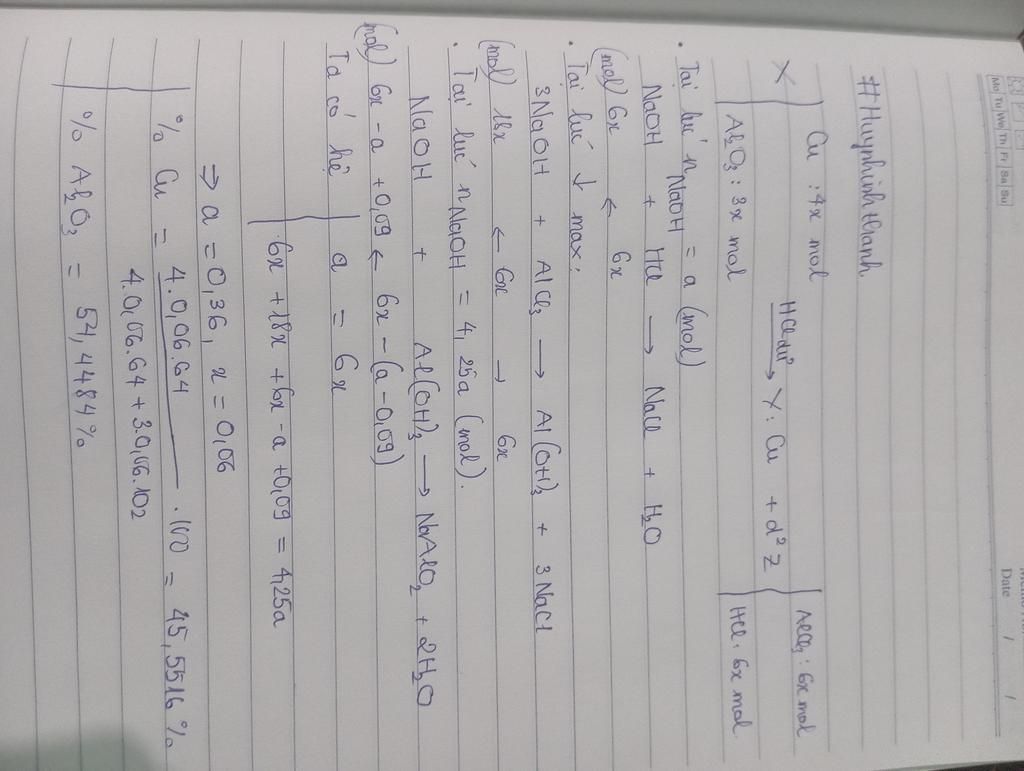 Mo Tu We Th Fr Sa Su
Date / /
#Huynhinhthanh
X | Cu : 4x mol
Al2O3 : 3x mol
HCl dư → Y: Cu + d² Z | AlCl3 : 6x mol
HCl : 6x mol
• Tại lúc nNaOH = a (mol)
NaOH + HCl → NaCl + H2O
(mol) 6x ← 6x
• Tại lúc ↓ max:
3NaOH + AlCl3 → Al(OH)3 + 3NaCl
(mol) 18x ← 6x → 6x
• Tại lúc nNaOH = 4,25a (mol).
NaOH + Al(OH)3 → NaAlO2 + 2H2O
(mol) 6x - a + 0,09 ← 6x - (a - 0,09)
Ta có hệ | a = 6x
6x + 18x + 6x - a + 0,09 = 4,25a
⇒ a = 0,36, x = 0,06
% Cu = 4.0,06.64 / 4.0,06.64 + 3.0,06.102 . 100 = 45,5516 %
% Al2O3 = 54,4484 %